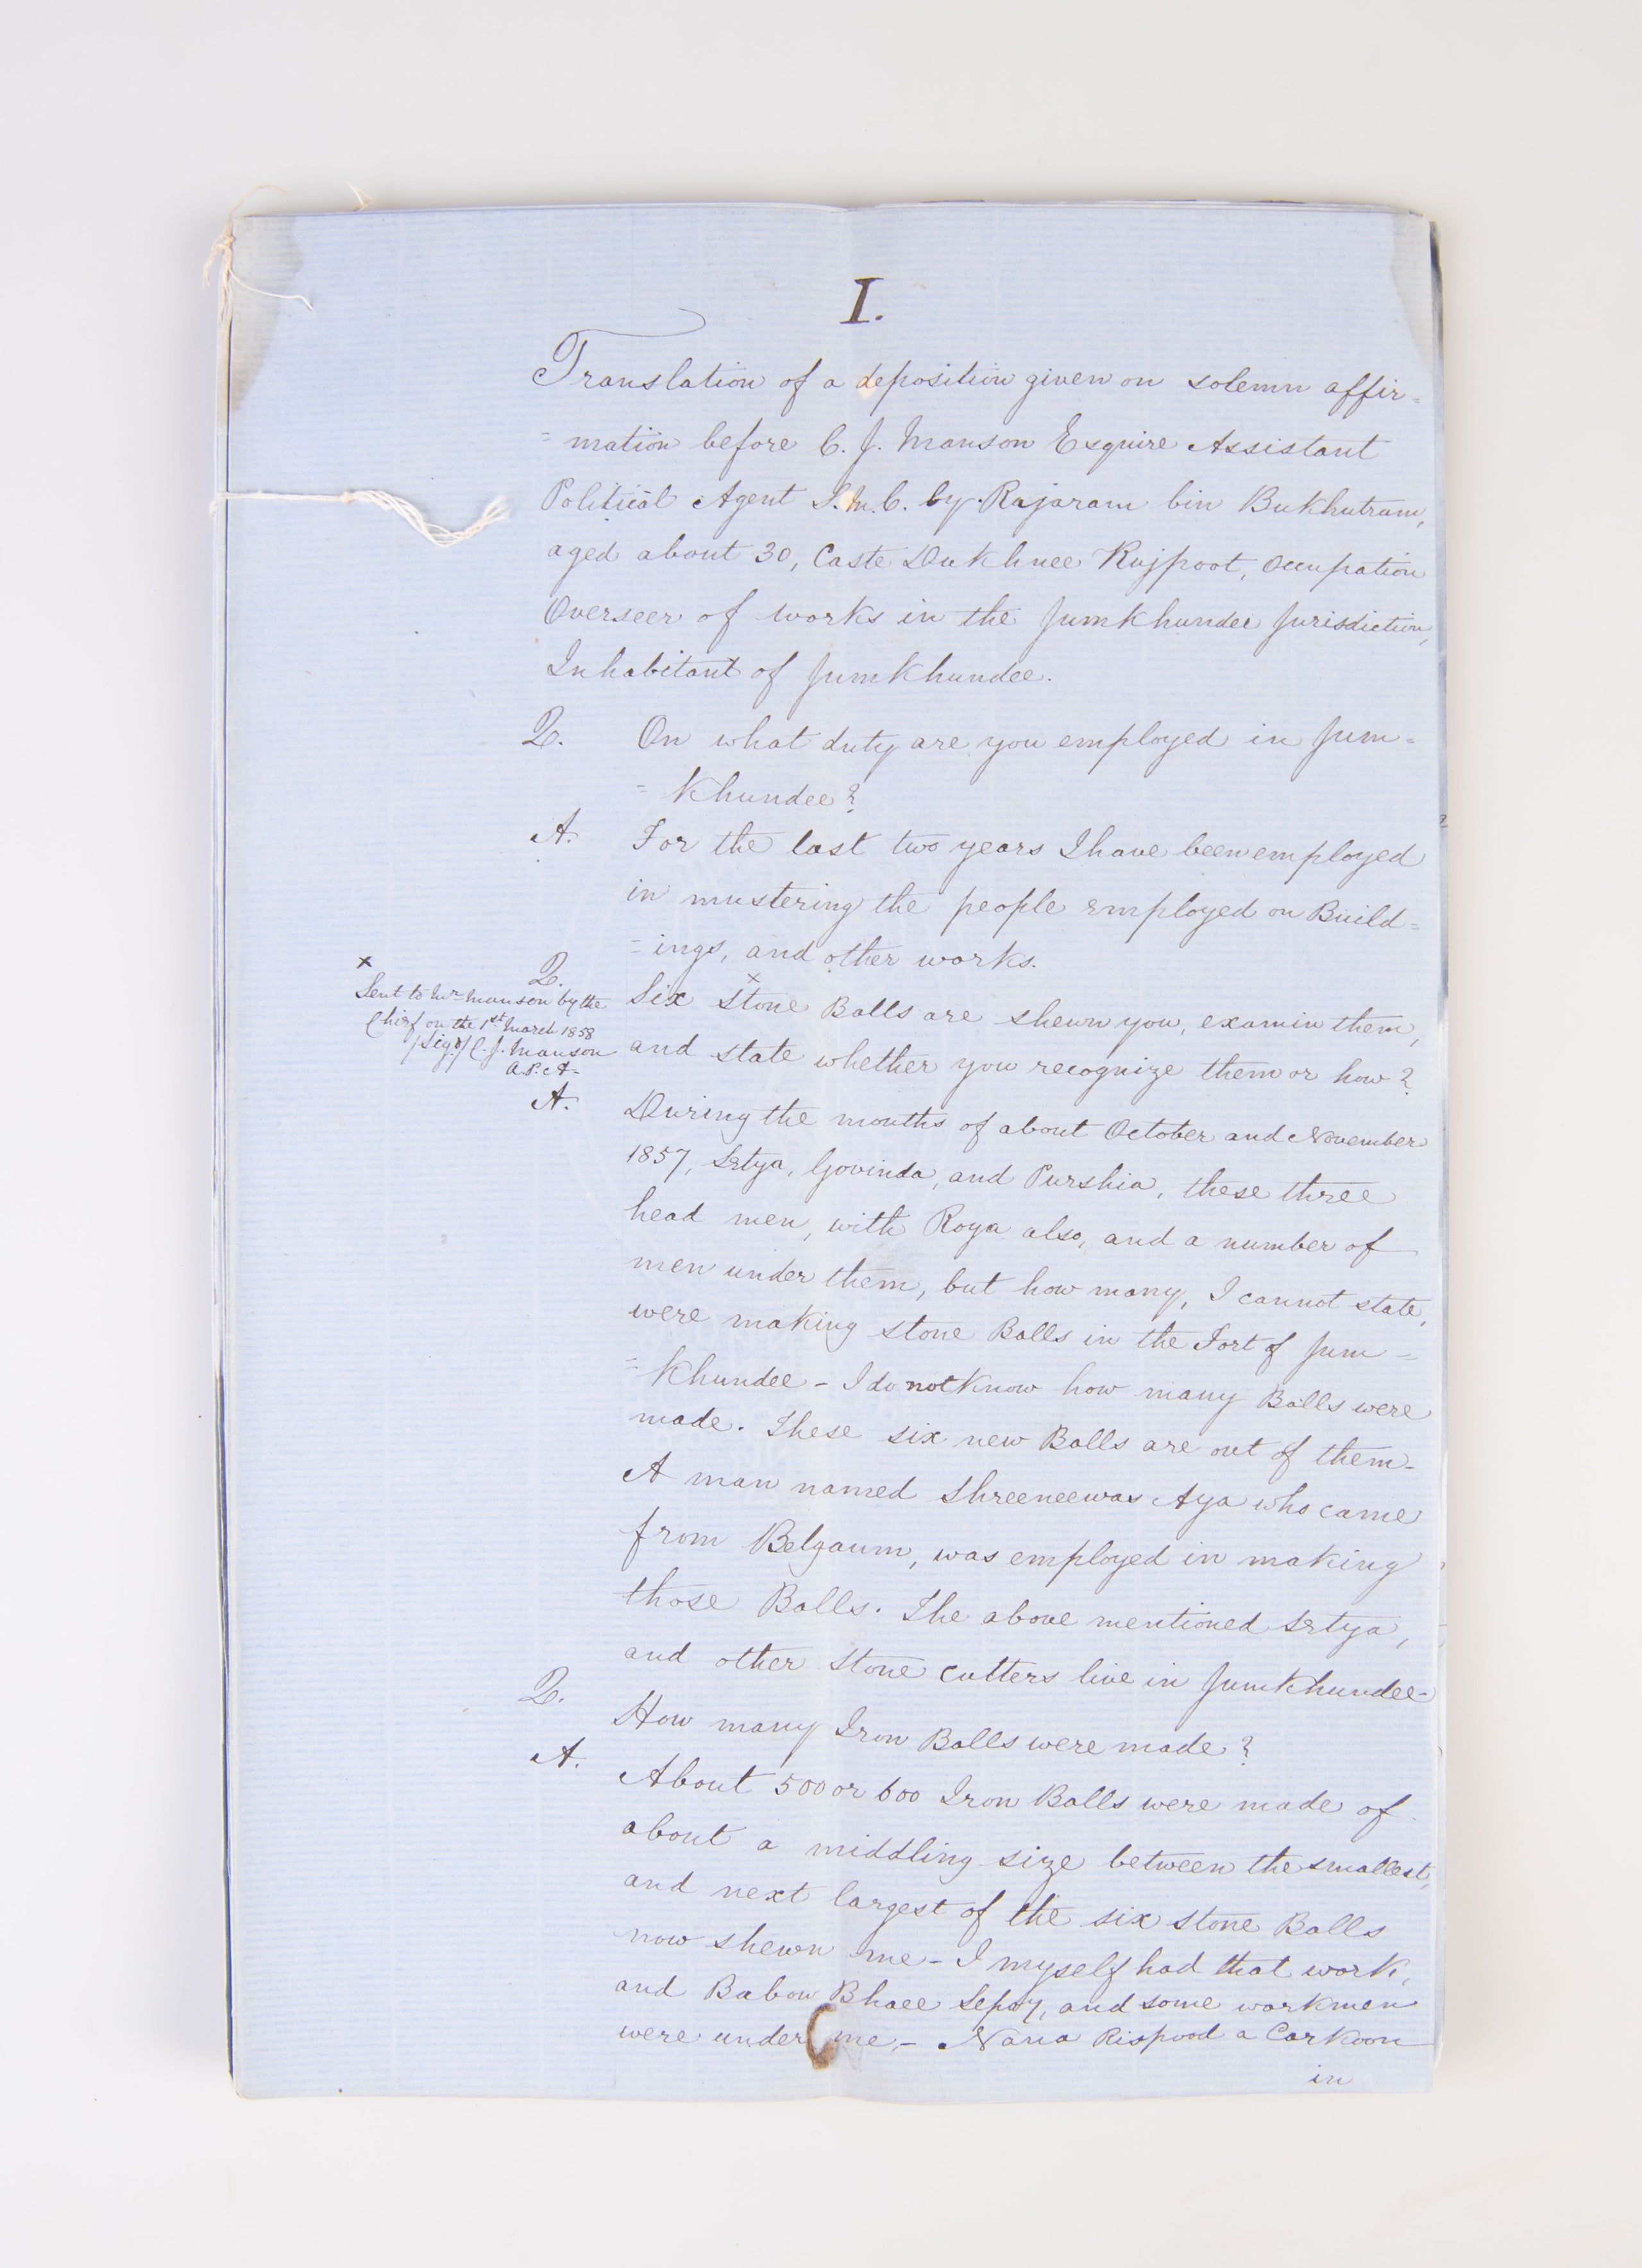 I.
Translation of a deposition given on solemn affir=
=mation before C. J. Manson Esquire Assistant
Political Agent S.M.C. by Rajaram bin Bukhutram,
aged about 30, Caste Dukhnee Rujpoot, occupation
Overseer of works in the Jumkhundee Jurisdiction,
Inhabitant of Jumkhundee.
Q. On what duty are you employed in Jum=
=khundee?
A. For the last two years I have been employed
in mustering the people employed on Build=
=ings, and other works.
Q. Six x stone Balls are shewn you, examin them,
and state whether you recognize them or how?
x
Sent to Mr Manson by the
Chief on the 1st March 1858
/Sigd/ C. J. Manson
A.P.A-
A. During the months of about October and November
1857, Satya, Govinda, and Purshia, these three
head men, with Roya also, and a number of
men under them, but how many, I cannot state,
were making stone Balls in the Fort of Jum=
=khundee - I do not know how many Balls were
made. These six new Balls are out of them-
A man named Shreeneewas Aya who came
from Belgaum, was employed in making
those Balls. The above mentioned Satya,
and other stone cutters live in Jumkhundee-
Q. How many Iron Balls were made?
A. About 500 or 600 Iron Balls were made of
about a middling size between the smallest,
and next largest of the six stone Balls
now shewn me - I myself had that work,
and Babow Bhaee Sepoy, and some workmen
were under me, - Nana Rispood a Carkoon
in